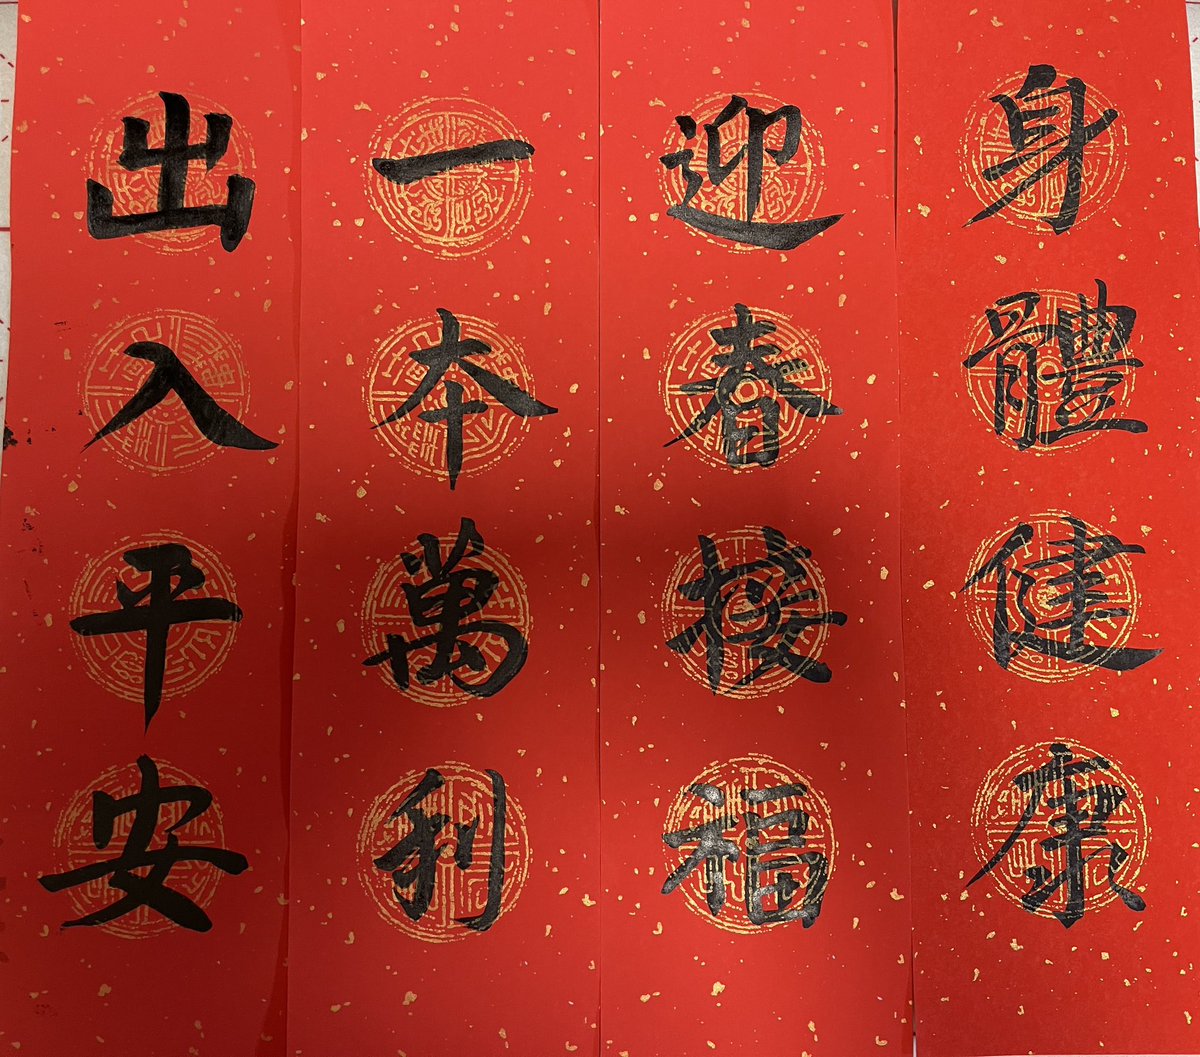 身體健康
迎春接福
一本萬利
出入平安